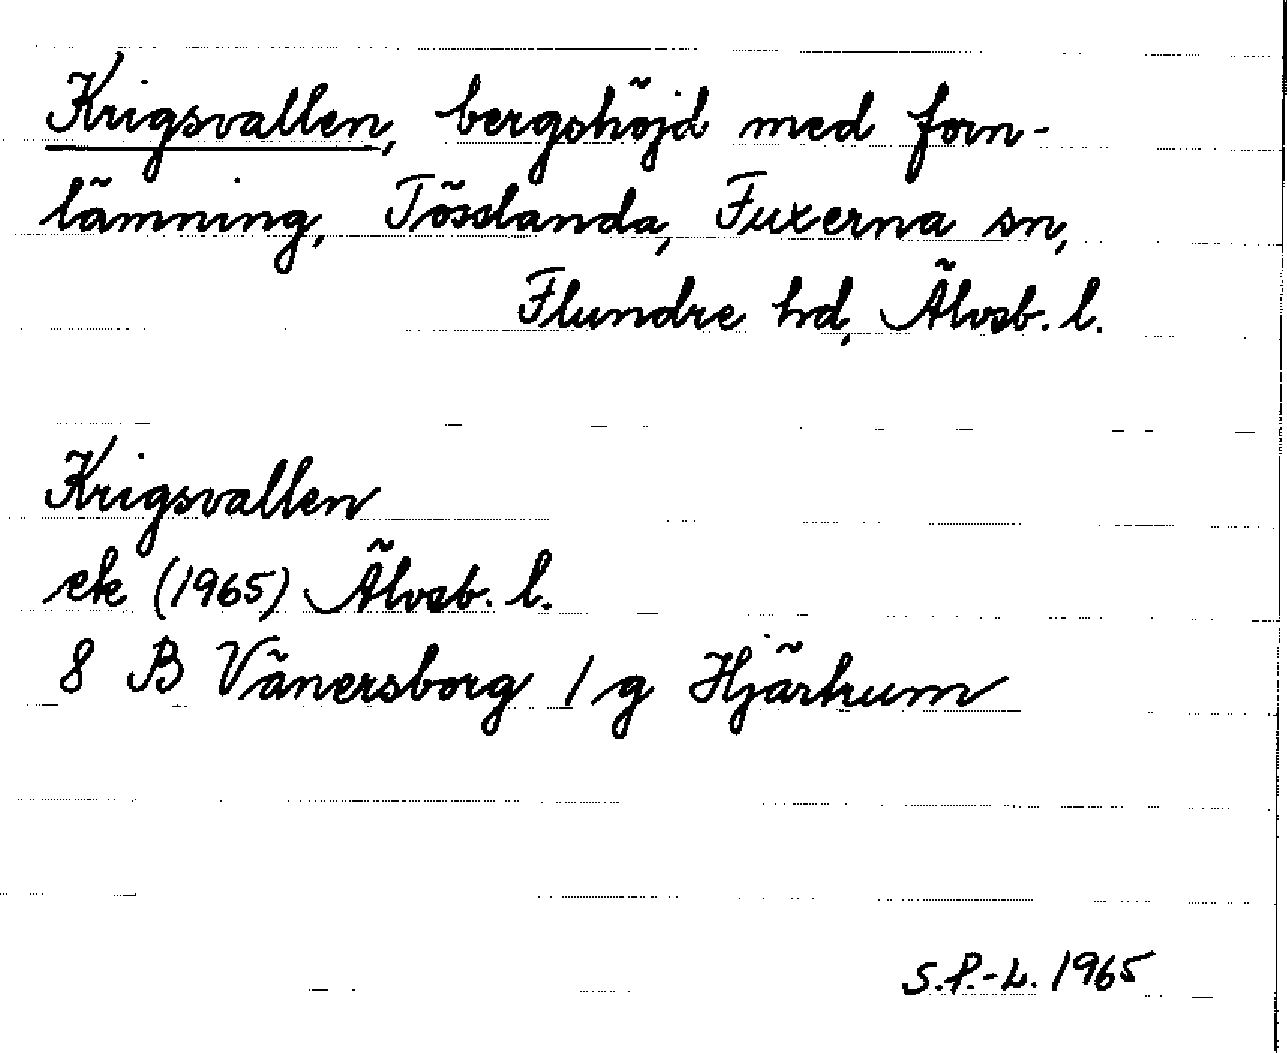 Krigsvallen, bergshöjd med forn-
lämning, Tösslanda, Fuxerna sn,
Flundre hd, Älvsb. l.
Krigsvallen
ek (1965) Älvsb. l.
8 B Vänersborg 1 g Hjärtum
S.P.-L. 1965